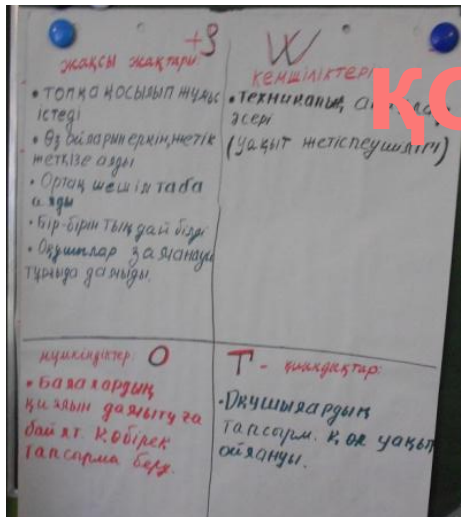 +S
жақсы жақтары:
• топқа қосылып жұмыс
істеді
• Өз ойларын еркін, жетік
жеткізе алды
• Ортақ шешім таба
алды
• Бір-бірін тыңдай білді
• Оқушылар заманауи
тұрғыда дамыды.
W
кемшіліктері
• Техникалық
әсері
(уақыт жетіспеушілігі)
ҚО
мүмкіндіктер: O
• Балалардың
қиялын дамытуға
байл. т. көбірек
тапсырма беру.
T - қиындықтар:
• Оқушылардың
тапсырм. к, ол уақыт
ойлануы.